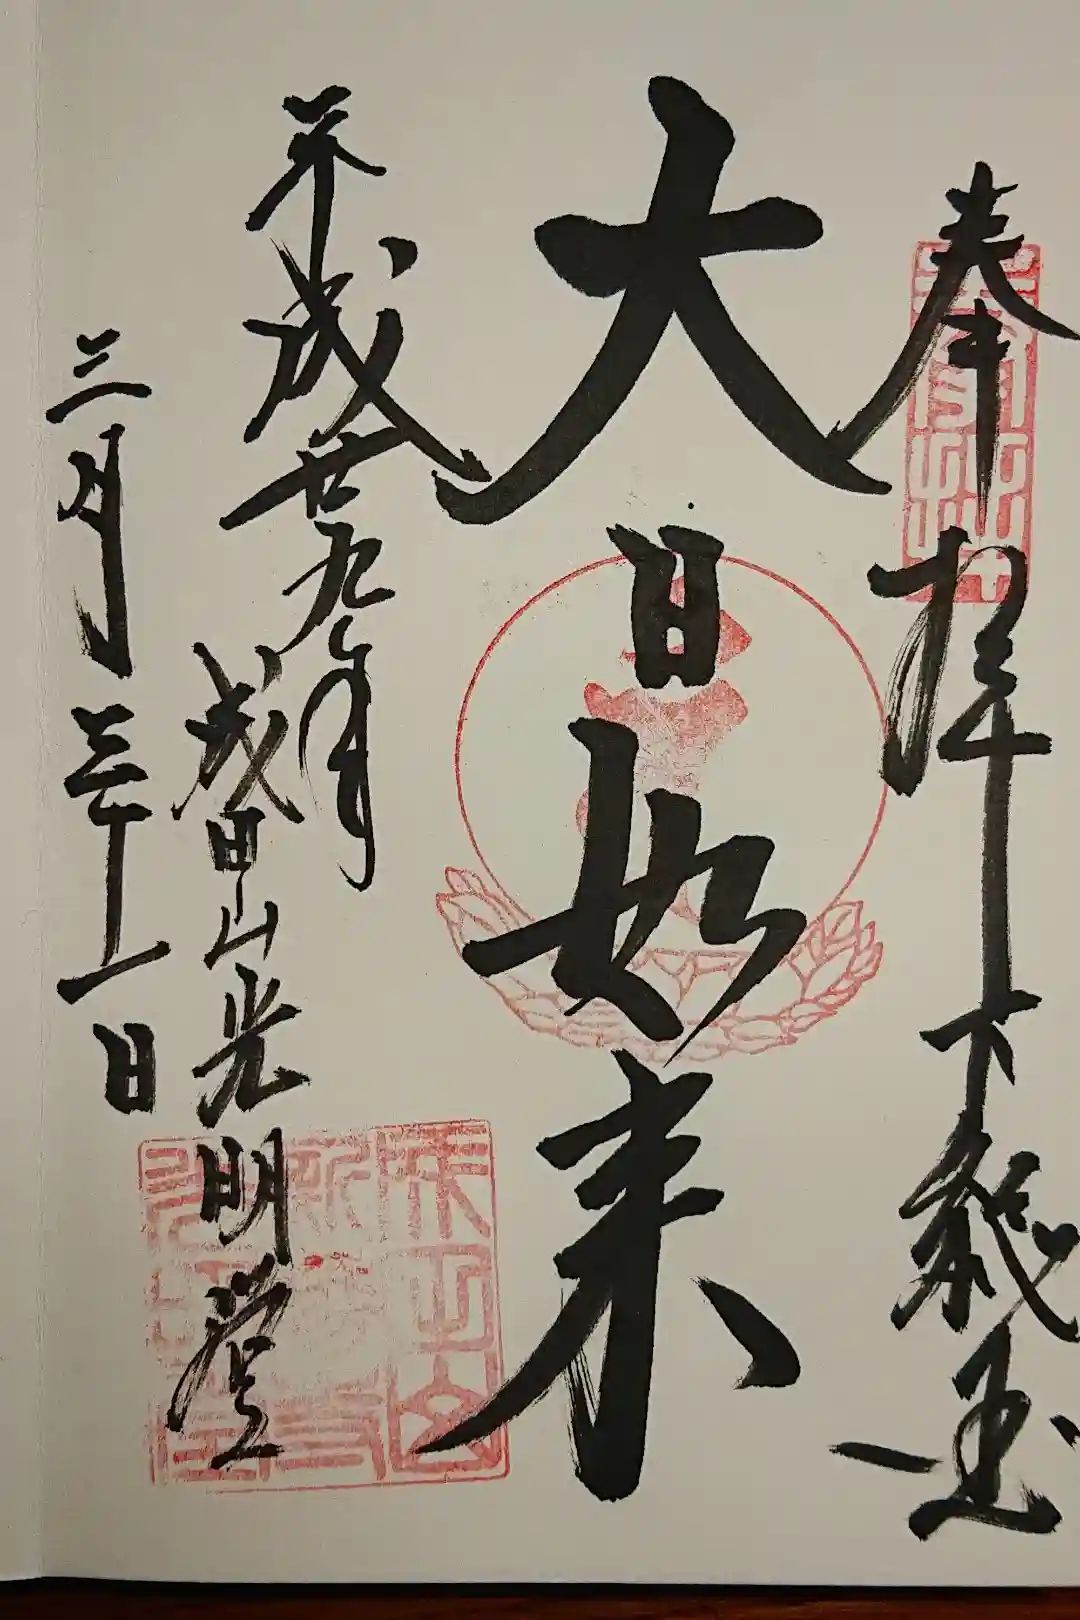 奉拝
大日如来
平成廿九年
成田山光明堂
三月三十一日